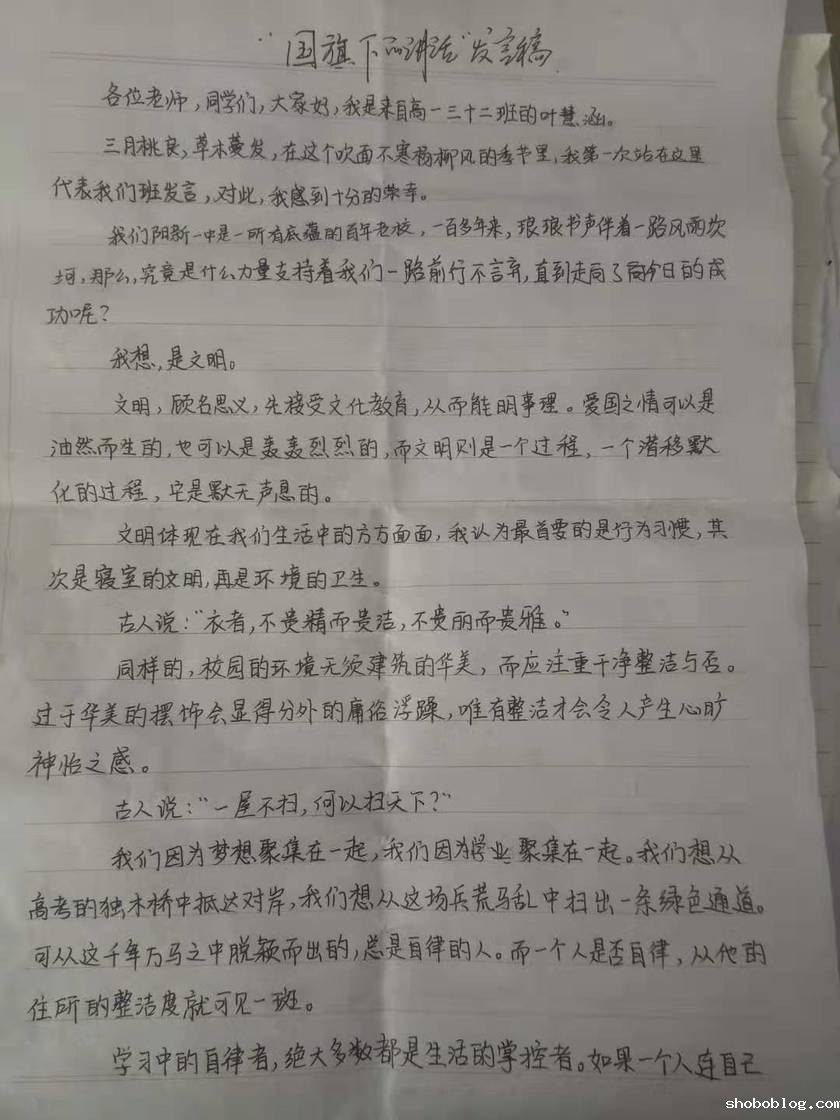 “国旗下的讲话”发言稿
各位老师，同学们，大家好，我是来自高一三十二班的叶慧涵。
三月桃良，草木蔓发，在这个吹面不寒杨柳风的季节里，我第一次站在这里
代表我们班发言，对此，我感到十分的荣幸。
我们阳新一中是一所有底蕴的百年老校，一百多年来，琅琅书声伴着一路风雨坎
坷，那么，究竟是什么力量支持着我们一路前行不言弃，直到走向了今日的成
功呢？
我想，是文明。
文明，顾名思义，先接受文化教育，从而能明事理。爱国之情可以是
油然而生的，也可以是轰轰烈烈的，而文明则是一个过程，一个潜移默
化的过程，它是默无声息的。
文明体现在我们生活中的方方面面，我认为最首要的是行为习惯，其
次是寝室的文明，再是环境的卫生。
古人说：“衣者，不贵精而贵洁，不贵丽而贵雅。”
同样的，校园的环境无须建筑的华美，而应注重干净整洁与否。
过于华美的摆饰会显得分外的庸俗浮躁，唯有整洁才会令人产生心旷
神怡之感。
古人说：“一屋不扫，何以扫天下？”
我们因为梦想聚集在一起，我们因为学业聚集在一起。我们想从
高考的独木桥中抵达对岸，我们想从这场兵荒马乱中扫出一条绿色通道。
可从这千军万马之中脱颖而出的，总是自律的人。而一个人是否自律，从他的
住所的整洁度就可见一斑。
学习中的自律者，绝大多数都是生活的掌控者。如果一个人连自己
shoboblog.com